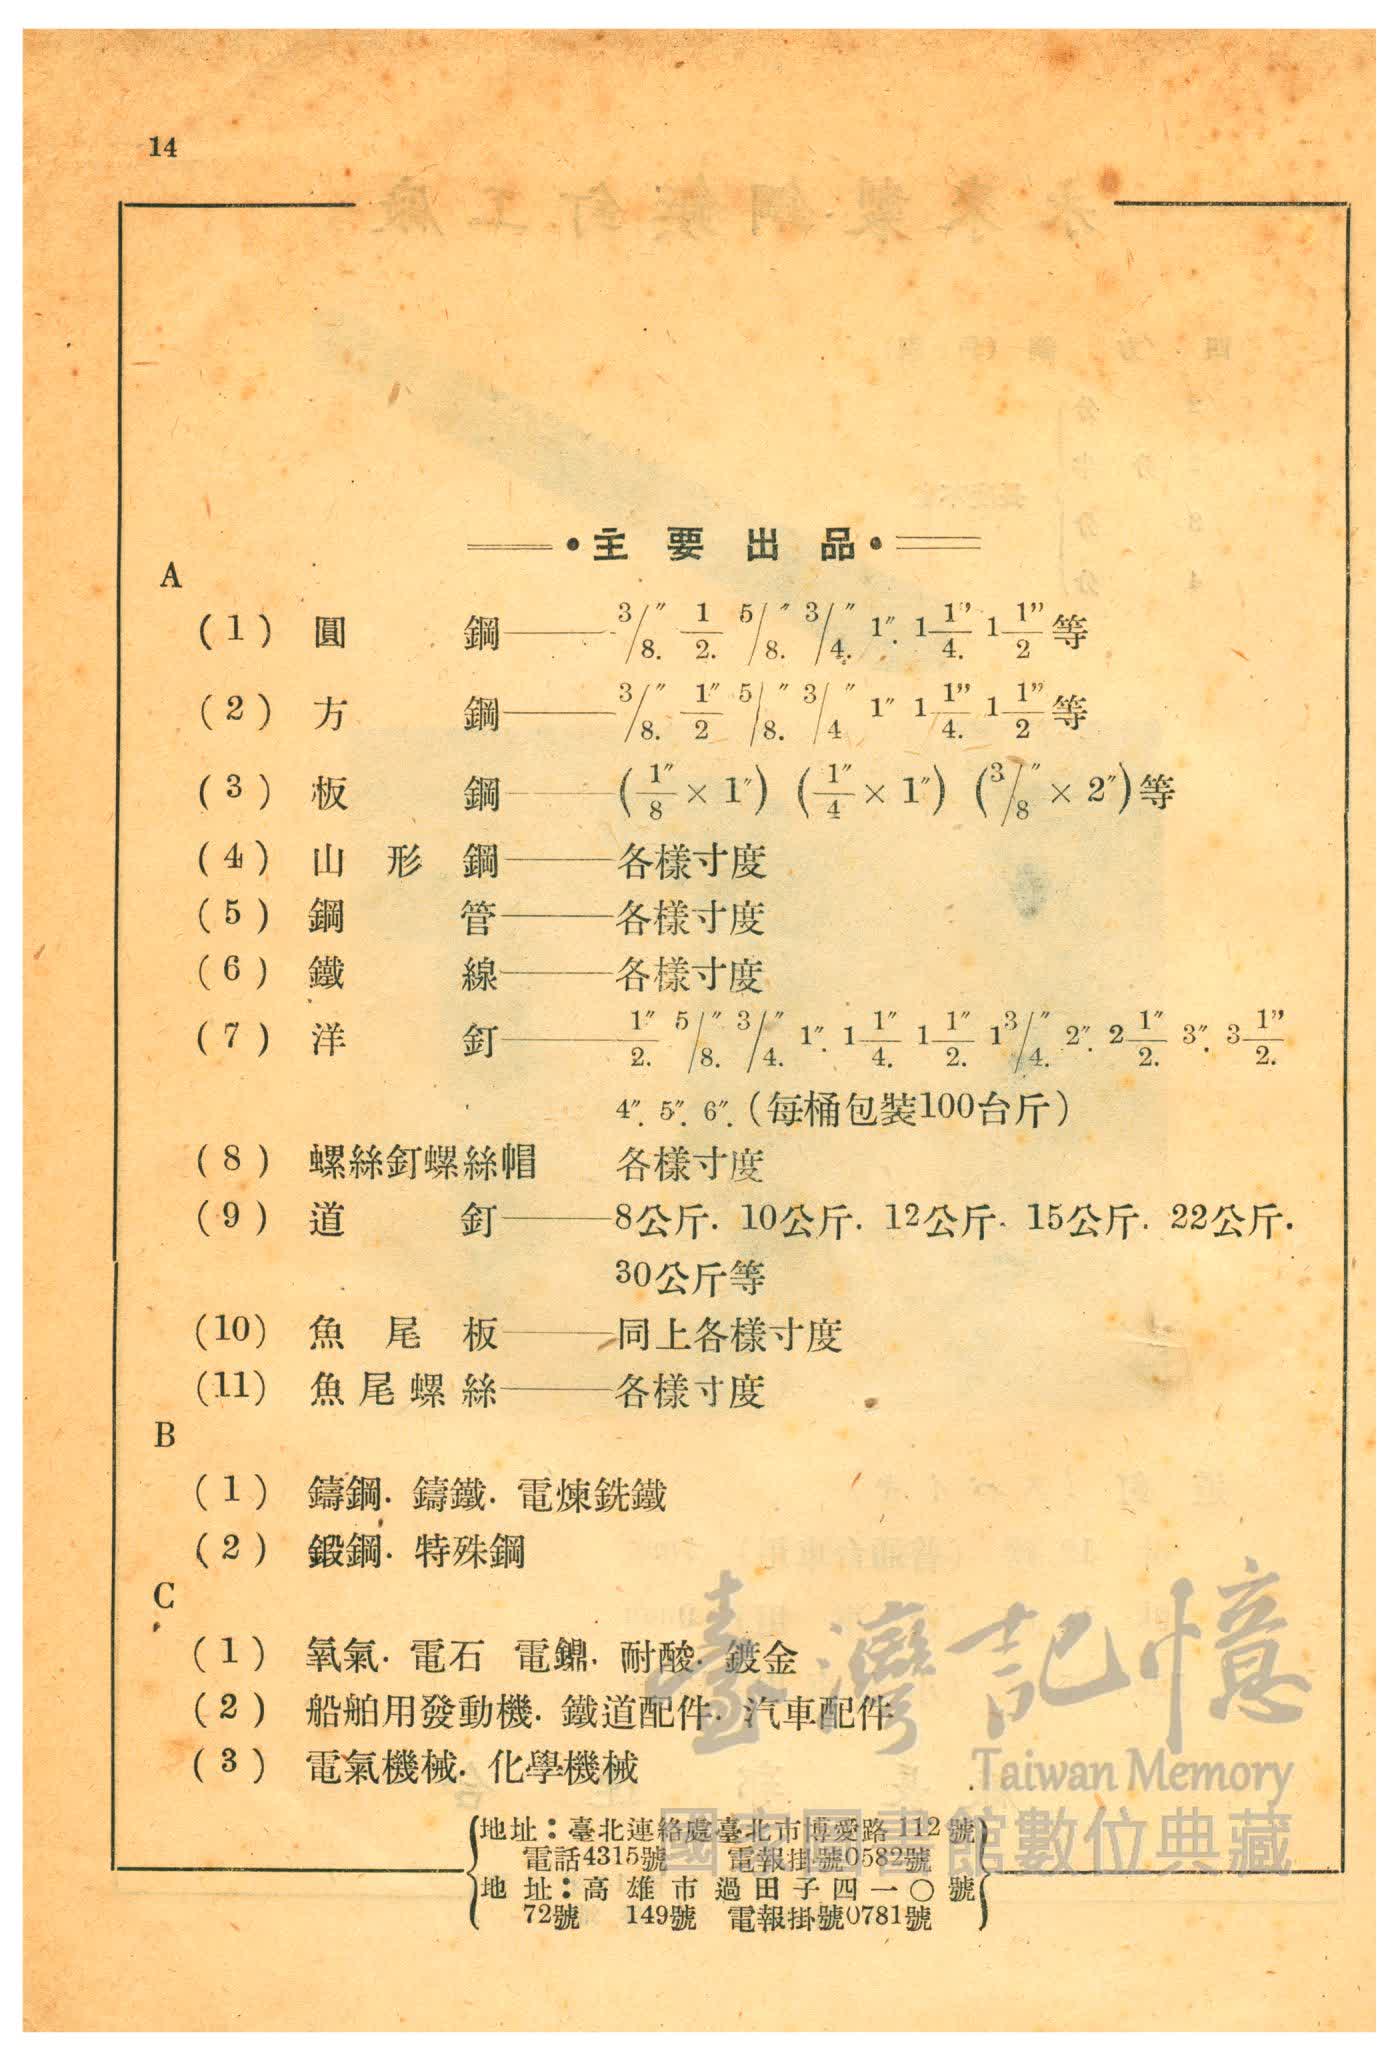 14
主要出品
A
(1) 圓鋼——3/8". 1/2. 5/8." 3/4." 1". 1 1/4." 1 1/2" 等
(2) 方鋼——3/8." 1/2" 5/8." 3/4" 1" 1 1/4." 1 1/2" 等
(3) 板鋼——(1/8"×1") (1/4"×1") (3/8"×2")等
(4) 山形鋼——各樣寸度
(5) 鋼管——各樣寸度
(6) 鐵線——各樣寸度
(7) 洋釘——1/2." 5/8." 3/4." 1". 1 1/4." 1 1/2." 1 3/4." 2". 2 1/2." 3". 3 1/2."
4". 5". 6". (每桶包裝100台斤)
(8) 螺絲釘螺絲帽 各樣寸度
(9) 道釘——8公斤. 10公斤. 12公斤. 15公斤. 22公斤.
30公斤等
(10) 魚尾板——同上各樣寸度
(11) 魚尾螺絲——各樣寸度
B
(1) 鑄鋼. 鑄鐵. 電煉銑鐵
(2) 鍛鋼. 特殊鋼
C
(1) 氧氣. 電石 電鎳. 耐酸. 鍍金
(2) 船舶用發動機. 鐵道配件. 汽車配件
(3) 電氣機械. 化學機械
地址：臺北連絡處臺北市博愛路112號
電話4315號 電報掛號0582號
地址：高雄市過田子四一〇號
72號 149號 電報掛號0781號
臺灣記憶
Taiwan Memory
國家圖書館數位典藏